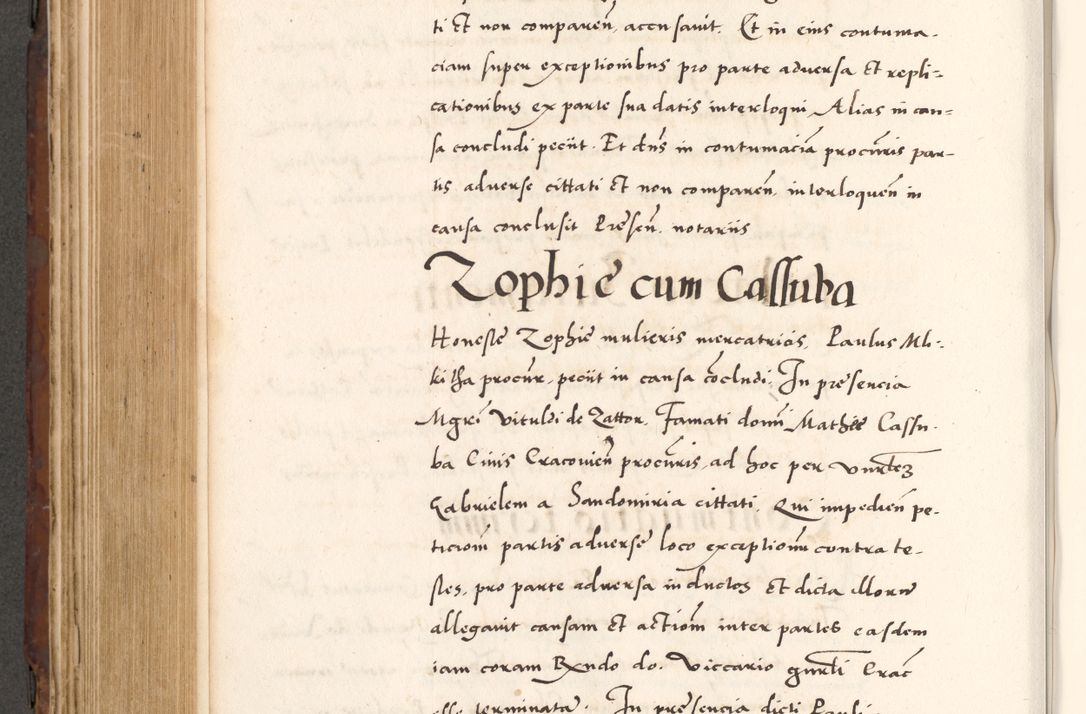 ti et non comparen̄, accusavit. Et in eius contuma-
ciam super exceptionibus pro parte adversa et repli-
cationibus ex parte sua datis interloqui Alias in cau-
sa concludi peciit. Et dn̄s in contumaciā procūris par-
tis adverse cittati et non comparen̄, interloquen̄ in
causa conclusit Presen̄. notariis
Zophie cum Cassuba
Honeste Zophie mulieris mercatricis, Paulus Mli-
kitha procur̄, peciit in causa cōcludi. In presencia
Mgrī Vituldi de Zattor, Famati domī Mathie Cassu-
ba Civis Cracovien̄ procūris, ad hoc per
Gabrielem a Sandomiria cittati, Qui impedien̄ pe-
ticiom partis adverse loco exceptionū contra te-
stes, pro parte adversa inductos et dicta illorum
allegavit causam et actiom̄ inter partes easdem
iam coram Rxndo do. Viccario gnrāli Crac̄
esse terminatā. In presencia dicti Pauli